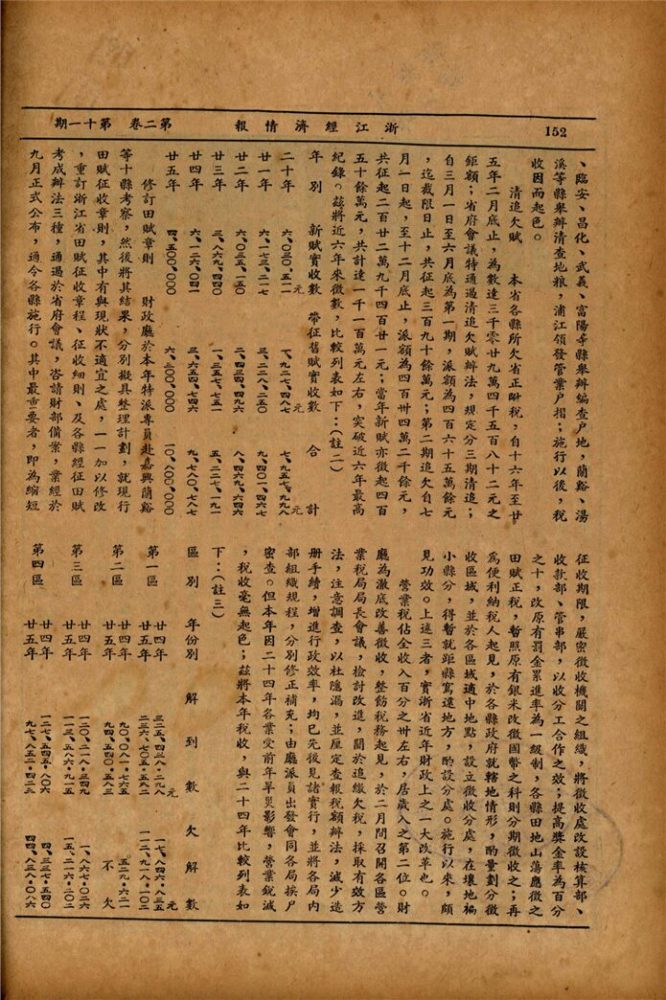 152
浙江經濟情報
第二卷 第十一期
、臨安、昌化、武義、富陽等縣舉辦編查戶地，蘭谿、湯
溪等縣舉辦清查地粮，浦江領發管業戶摺；施行以後，稅
收因而起色。
清追欠賦 本省各縣所欠省正附稅，自十六年至廿
五年二月底止，為數達三千零廿九萬四千五百八十二元之
鉅額；省府會議特通過清追欠賦辦法，規定分三期清追；
自三月一日至六月底為第一期，派額為四百六十五萬餘元
，迄截限日止，共征起三百九十餘萬元；第二期追欠自七
月一日起，至十二月底止，派額為四百卅四萬二千餘元，
共征起二百廿二萬九千四百廿一元；當年新賦亦徵起四百
五十餘萬元，共計達一千一百萬元左右，突破近六年最高
紀錄。茲將近六年來徵數，比較列表如下：（註二）
年別 新賦實收數 帶征舊賦實收數 合計
二十年 六、〇三〇、五一一元 一、九二七、四八七元 七、九五七、九九八元
廿一年 六、一七三、二一七 三、二二八、二五〇 九、四〇一、四六七
廿二年 六、〇三五、一五〇 二、四三四、四九六 八、四六九、六四六
廿三年 三、八六九、四四〇 一、三五七、七五一 五、二二七、一九一
廿四年 六、一二六、〇四一 三、六五四、七四六 九、七八〇、七八七
廿五年 四、五〇〇、〇〇〇 六、三〇〇、〇〇〇 一〇、八〇〇、〇〇〇
修訂田賦章則 財政廳於本年特派專員赴嘉興蘭谿
等十縣考察，然後將其結果，分別擬具整理計劃，就現行
田賦征收章則，其中有與現狀不適宜之處，一一加以修改
，重訂浙江省田賦征收章程、征收細則、及各縣經征田賦
考成辦法三種，通過於省府會議，咨請財部備案，業經於
九月正式公布，通令各縣施行。其中最重要者，即為縮短
征收期限，嚴密徵收機關之組織，將徵收處改設核算部、
收款部、管串部，以收分工合作之效；提高獎金率為百分
之十，改原有罰金累進率為一級制，各縣田地山蕩應徵之
田賦正稅，暫照原有銀米改徵國幣之科則分期徵收之；再
為便利納稅人起見，於各縣政府就轄地情形，酌量劃分徵
收區域，並於各區域適中地點，設立徵收分處，在壤地褊
小縣分，得暫就距縣寫遠地方，酌設分處。施行以來，頗
見功效。上述三者，實浙省近年財政上之一大改革也。
營業稅佔全收入百分之卅左右，居歲入之第二位。財
廳為澈底改善徵收，整飭稅務起見，於二月間召開各區營
業稅局局長會議，檢討改進，關於追繳欠稅，採取有效方
法，注意調查，以杜隱漏，並厘定查報稅額辦法，減少造
册手續，增進行政效率，均已先後見諸實行，並將各局內
部組織規程，分別修正補充；由廳派員出發會同各局挨戶
密查。但本年因二十四年各業受前年旱災影響，營業銳減
，稅收毫無起色；茲將本年稅收，與二十四年比較列表如
下：（註三）
區別 年份別 解到數 欠解數
第一區 廿四年 三二五、四三八・二九八元 一一七、八四六・八三五元
廿五年 二三六、七〇五・五八二 一一二、九一八・一〇二
第二區 廿四年 九〇、〇八一・七七五 五二八・六二一
廿五年 九四、五〇五・八三三 不欠
第三區 廿四年 一二〇、二一八・三四九 一、八六七・〇二六
廿五年 一一三、五八六・九一五 一五、二一六・一〇二
第四區 廿四年 一二七、五四五・八〇六 四、三三七・五四〇
廿五年 九七、八五二・四二三 四四、八三八・〇八六